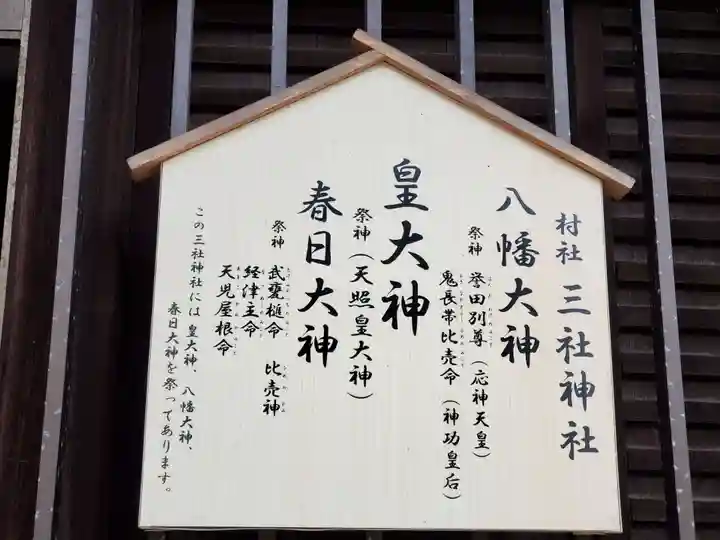 村社 三社神社
八幡大神
祭神 誉田別尊（応神天皇）
鬼長帯比売命（神功皇后）
皇大神
祭神（天照皇大神）
春日大神
祭神 武甕槌命 比売神
経津主命
天児屋根命
この三社神社には 皇大神、八幡大神、
春日大神を祭ってあります。